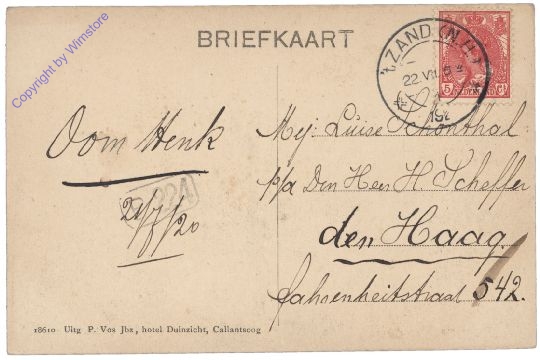 Copyright by Wimstore
BRIEFKAART
't ZAND (N.H.)
22 VII
5 Ct
NEDERLAND
Oom Henk
21/7/20
Mej: Luise Schönthal
p/a Den Heer H. Scheffer
den Haag
Fahrenheitstraat 542.
18610 Uitg P. Vos Jbz, hotel Duinzicht, Callantsoog